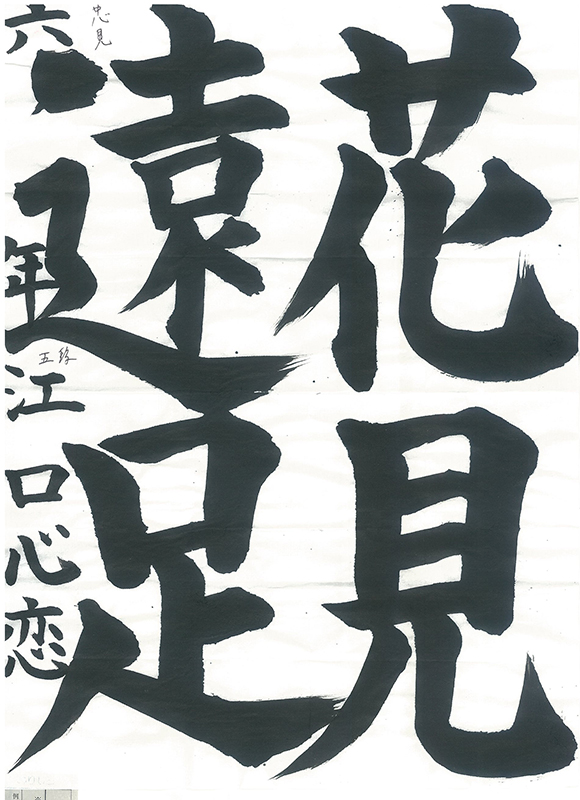 花見
遠足
六年 江口心恋
忠見
五段